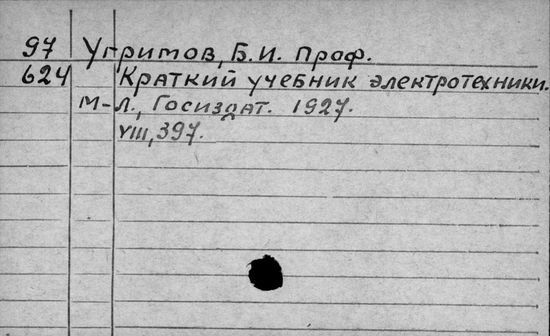 97 Угримов, Б.И. Проф.
624 Краткий учебник электротехники.
М-Л., Госиздат. 1927.
VIII, 397.